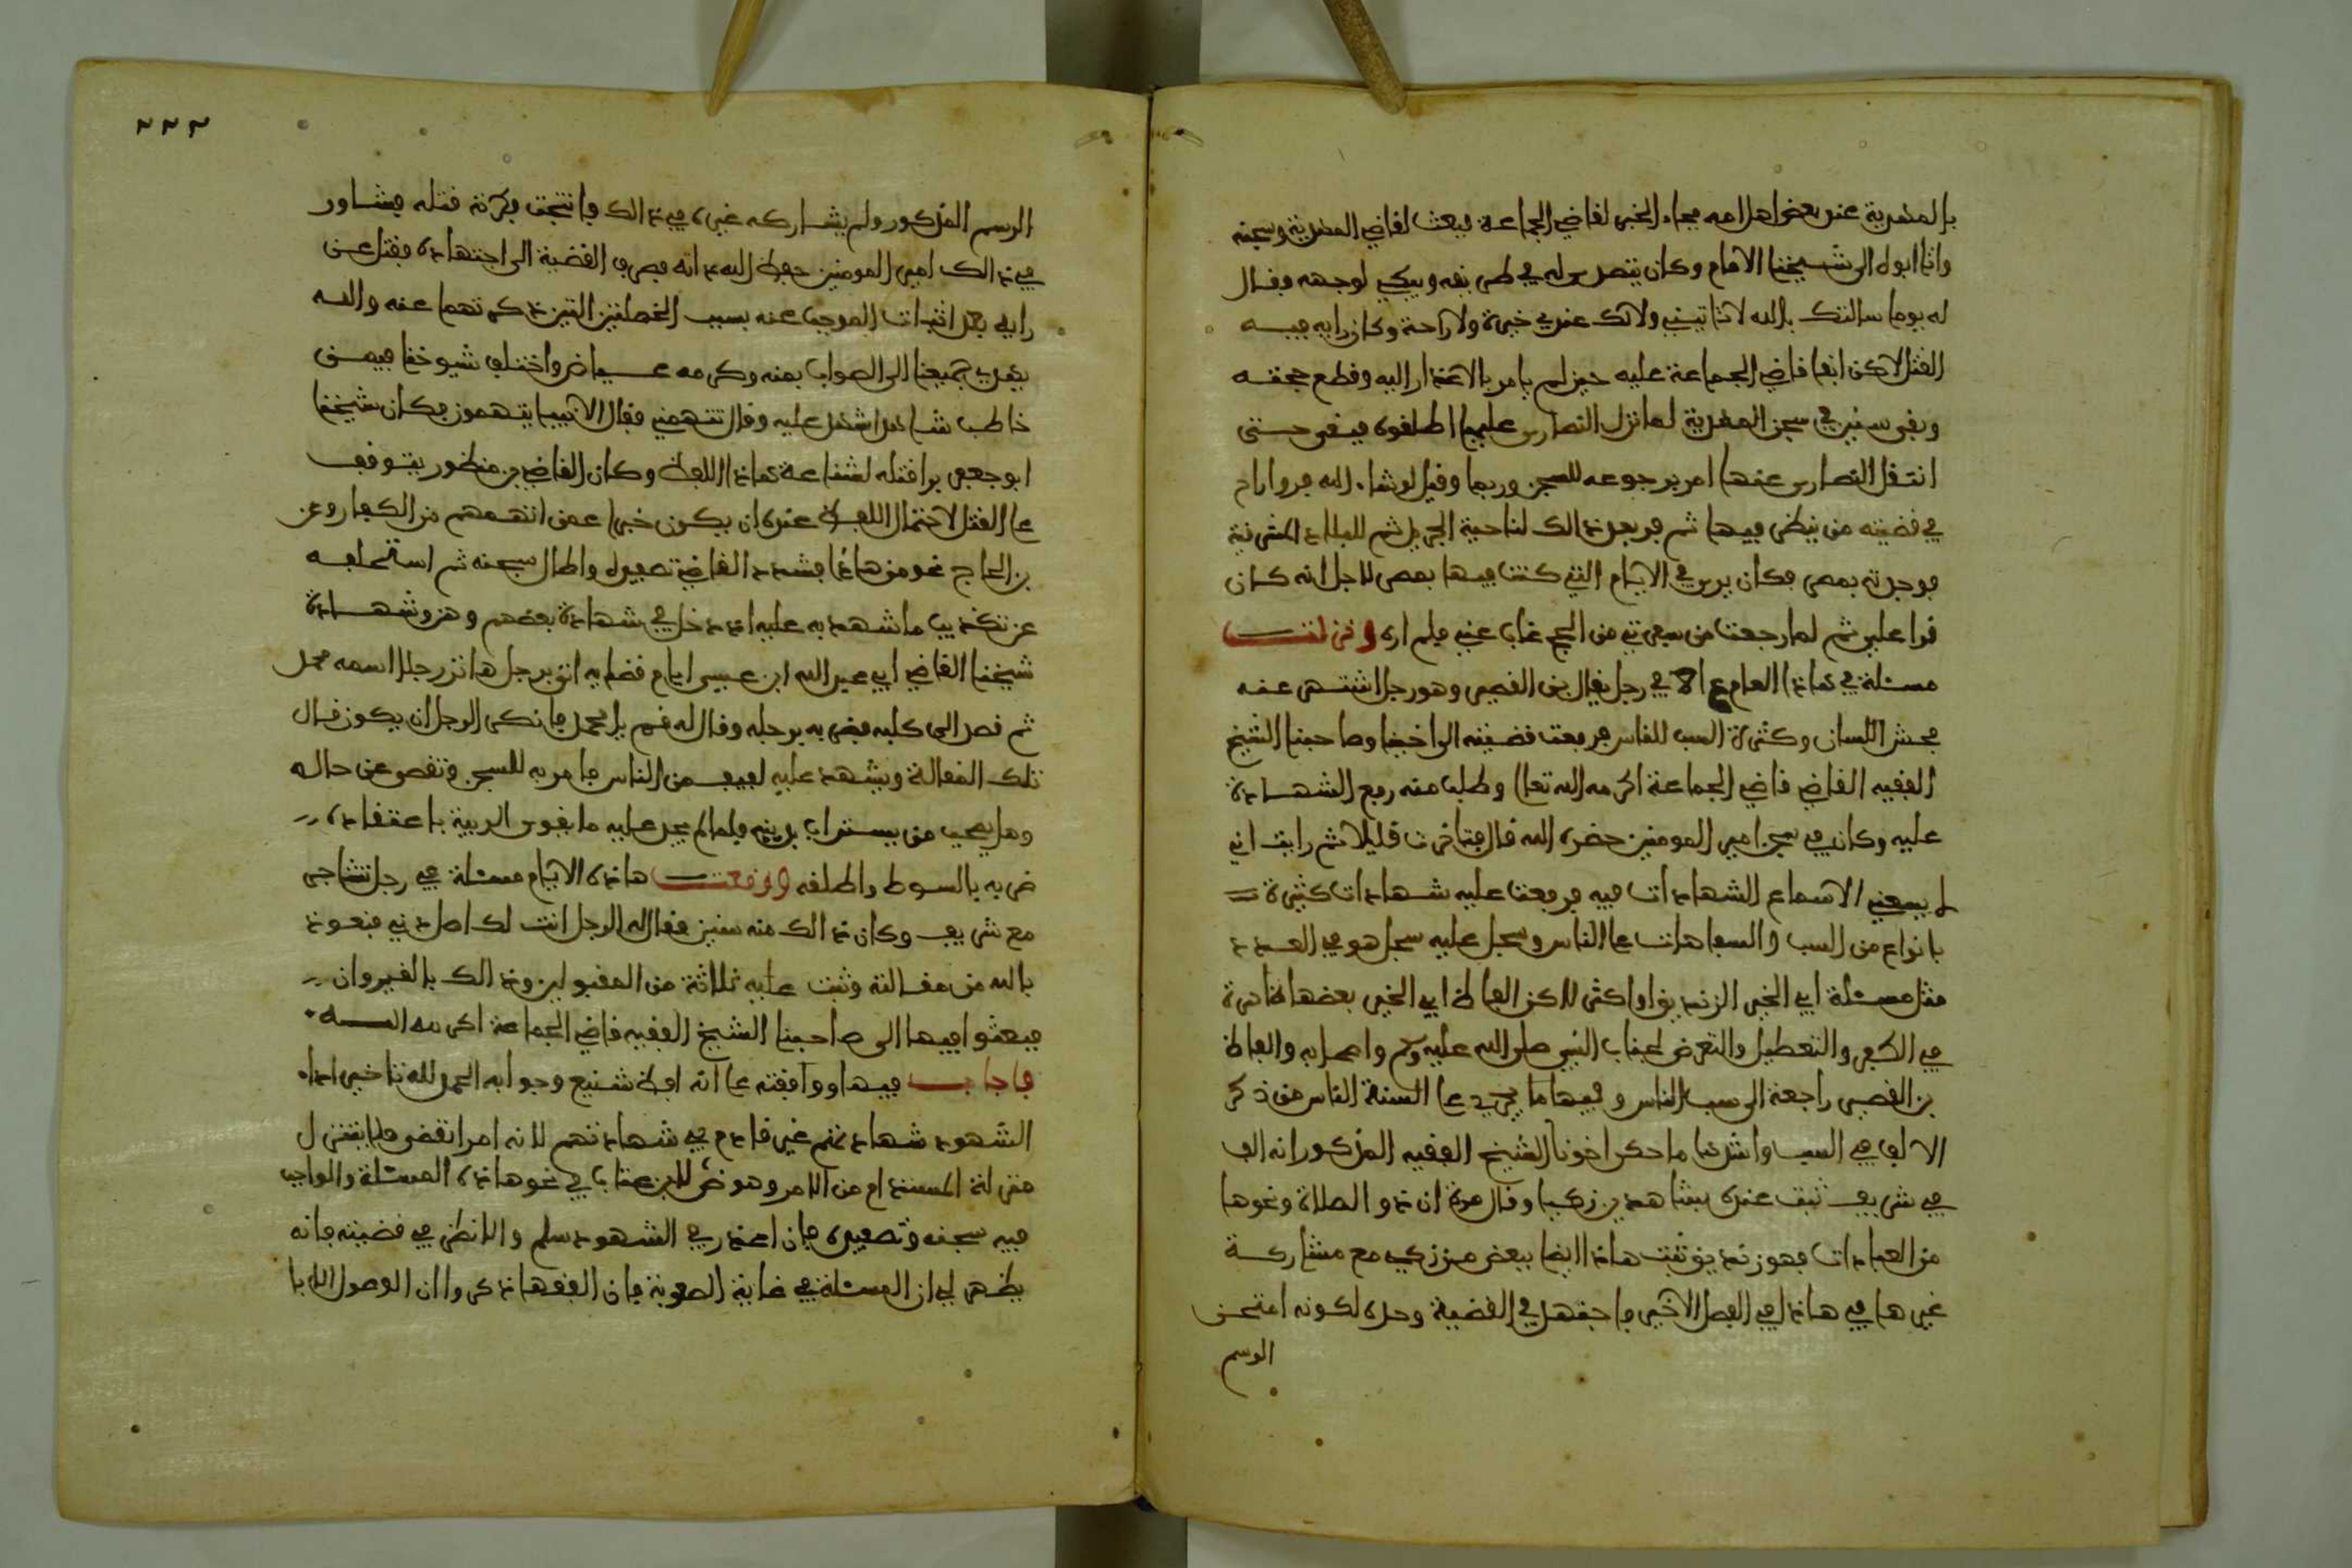 بالمهدية عند بعض اهلها مه فجاء الخبر لقاضي الجماعة فبعث لقاضي المهدية وسجنه
واتا ابوه الى شيخنا الامام وكان يتصدى له في طريقه ويبكي لوجهه وقال
له يوما سالتك بالله لا تاتيني ولا لك عندي خيرة ولا راحة وكان رايه فيه
القتل لاكن ابقا قاضي الجماعة عليه حين لم يامر بالاعذار اليه وقطع حجته
وبقى سنين في سجن المهدية لما نزل النصارى عليها اطلقوه فبقى حتى
انتقل النصارى عنها امر برجوعه للسجن وربما وقيل لو شاء الله فر واراح
في قضيته من ينظر فيها ثم فر بعد ذالك لناحية الجريد ثم للبلاد المشرقية
فوجدته بمصر فكان يرى في الايام التي كنت فيها بمصر لاجل انه كان
قرا علي ثم لما رجعت من سفرتي من الحج غاب عني فلم اره ونزلت
مسئلة في هاذا العام في رجل يقال بن القصير وهو رجل اشتهر عنه
فحش اللسان وكثرة السب للناس فرفعت قضيته الى اخينا وصاحبنا الشيخ
الفقيه القاضي قاضي الجماعة اكرمه الله تعلى وطلب منه رفع الشهادة
عليه وكان في سجن امير المومنين نصره الله قال فتاخرت قليلا ثم رايت اني
لم يسعني الا سماع الشهادات فيه فرفعت عليه شهادات كثيرة
بانواع من السب والسفاهات على الناس وسجل عليه سجل هو في العدد
مثل مسئلة ابي الخير الزنديق او اكثر لاكن الفاظ ابي الخير بعضها ظاهرة
في الكفر والتعطيل والتعرض لجناب النبي صلى الله عليه وسلم واصحابه والفاظ
بن القصير راجعة الى سب الناس وفيها ما يجري على السنة الناس من ذكر
الالف في السب واشدها ما حكى اخونا الشيخ الفقيه المذكور انه الف
في شريف ثبت عنده بشاهدين زكيا وقال مرة ان ذو الصلاة ونحوها
من العبادات فهو زنديق ثبت هاذا ايضا ببعض من زكي مع مشاركة
غيرها في هاذا في الفصل الاخير فاجتهد في القضية وحده لكونه امتحن
الرسم
٢٢٣
الرسم المذكور ولم يشاركه غيره في ذالك فانتجت فكرته قتله فشاور
في ذالك امير المومنين حفظ الله ذاته فصرف القضية الى اجتهاده فقتل عن
رايه بعد اثبات الموجب عنه بسبب الخصلتين التين ذكرتهما عنه والله
يهدي جميعنا الى الصواب بمنه وكرمه عياض واختلف شيوخنا فيمن
خاطب شاهدا شهد عليه وقال تتهمني فقال الانبيا يتهمون فكان شيخنا
ابو جعفر يرا قتله لشناعة هاذا اللفظ وكان القاضي بن منظور يتوقف
عن القتل لاحتمال اللفظ عنده ان يكون خبرا عمن اتهمهم من الكفار وعن
بن الحاج نحو من هاذا فشدد القاضي تصفيده واطال سجنه ثم استحلفه
عن تكذيب ما شهد به عليه اذ دخل في شهادة بعضهم وهن وشهادة
شيخنا القاضي ابي عبد الله ابن عيسى ايام قضايه اتى برجل هاتر رجلا اسمه محمد
ثم قصد الى كلبه فضربه برجله وقال له قم يا محمد فانكر الرجل ان يكون قال
تلك المقالة وشهد عليه لفيف من الناس فامر به للسجن وتقصى عن حاله
وهل يصحب من يستراب بدينه فلما لم يجد عليه ما يقوى الريبة باعتقاده
ضربه بالسوط واطلقه ووقعت هاذه الايام مسئلة في رجل تشاجر
مع شريف وكان ذالك منه سنين فقال له الرجل انت لك اصل دني فنعوذ
بالله من مقالته وثبت عليه ثلاثة من المقبولين وذالك بالقيروان
فبعثوا فيها الى صاحبنا الشيخ الفقيه قاضي الجماعة اكرمه الله
فاجاب فيها ووافقته على انه لفظ شنيع وجوابه الحمد لله تاخير اداء
الشهود شهادتهم غير قادح في شهادتهم لانه امر انقضى فلا يتنزل
منزلة المستدام من الامر وهو نص لابن عتاب في نحو هاذه المسئلة والواجب
فيه سجنه وتصفيده فان اعذر في الشهود سلم والا نظر في قضيته فانه
يظهر لي ان المسئلة في غاية الصعوبة فان الفقها ذكروا ان الوصول الا با